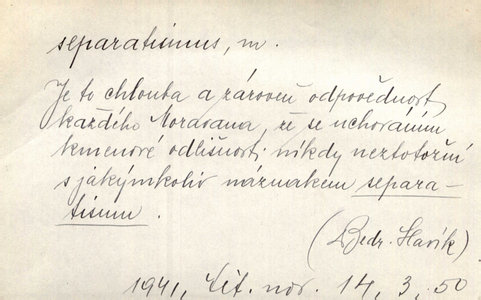 separatismus, m.
Je to chlouba a zároveň odpovědnost
každého Moravana, že se uchováním
kmenové odlišnosti nikdy neztotožní
s jakýmkoliv náznakem separa-
tismu.
(Bedr. Slavík)
1941, Lit. nov. 14, 3, 50